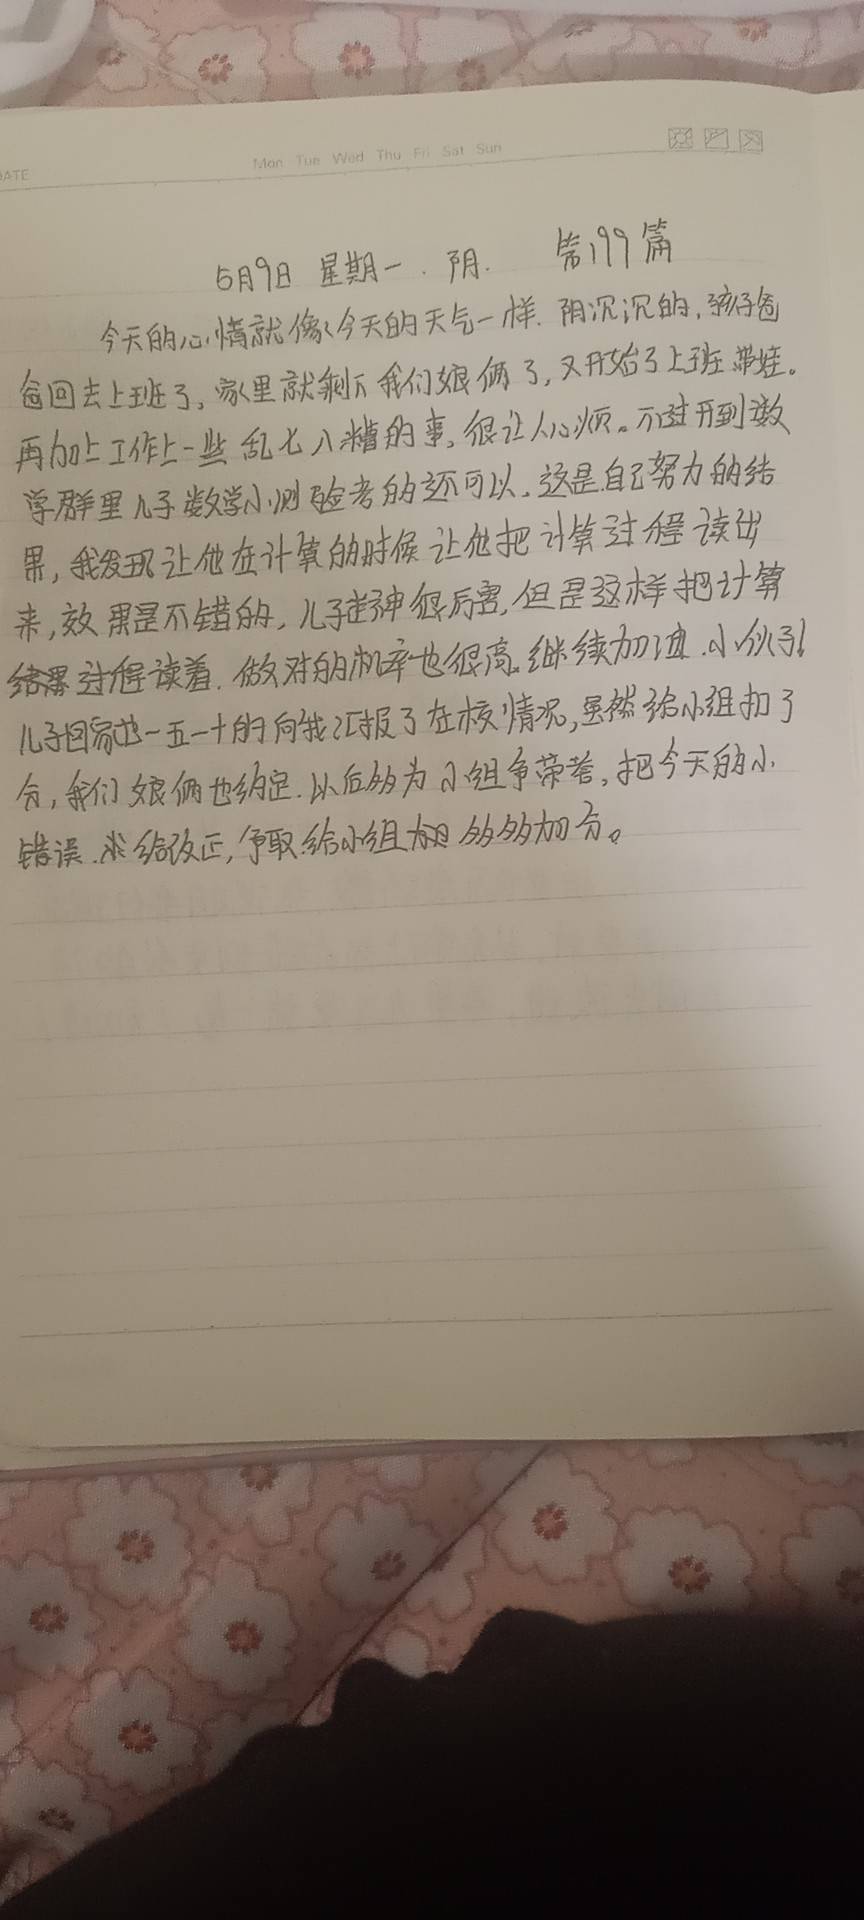 DATE
Mon Tue Wed Thu Fri Sat Sun
5月9日 星期一. 阴. 第199篇
今天的心情就像今天的天气一样. 阴沉沉的, 孩子爸
爸回去上班了, 家里就剩下我们娘俩了, 又开始了上班带娃。
再加上工作上一些乱七八糟的事, 很让人心烦。不过看到数
学群里儿子数学小测验考的还可以, 这是自己努力的结
果, 我发现让他在计算的时候让他把计算过程读出
来, 效果是不错的, 儿子走神很厉害, 但是这样把计算
结果过程读着, 做对的机率也很高, 继续加油, 小伙子!
儿子回家也一五一十的向我汇报了在校情况, 虽然给小组扣了
分, 我们娘俩也约定, 以后多为小组争荣誉, 把今天的小
错误, 给改正, 争取给小组多多加分。